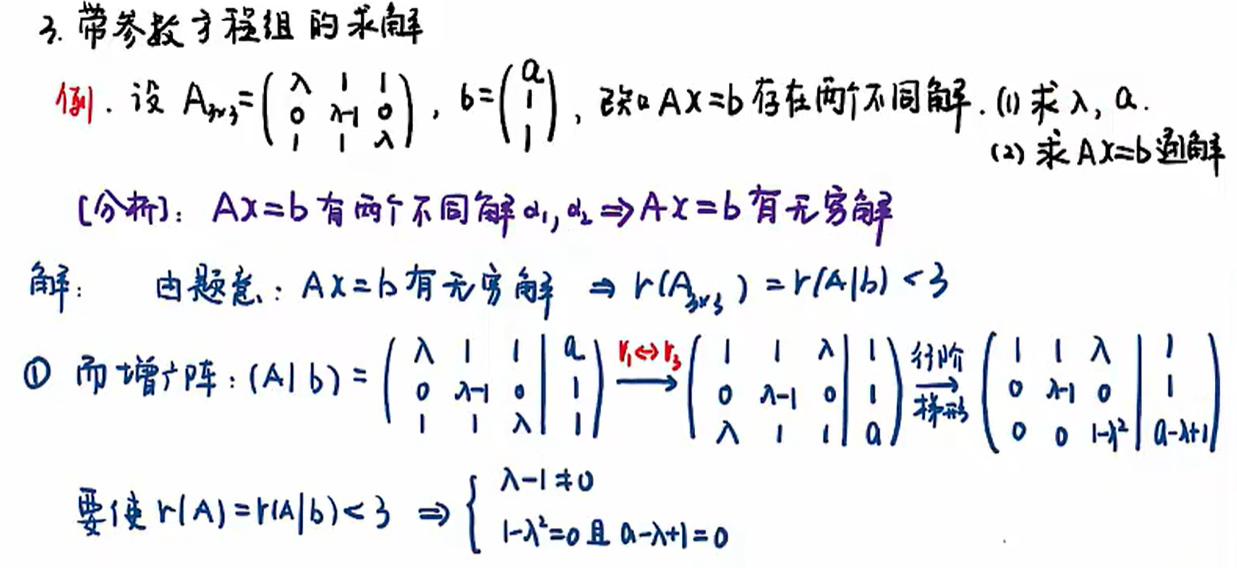 3. 带参数方程组的求解
例. 设 A₃ₓ₃=(λ 1 1; 0 λ-1 0; 1 1 λ), b=(a; 1; 1), 已知AX=b存在两个不同解. (1) 求λ, a.
(2) 求AX=b通解
[分析]: AX=b有两个不同解α₁,α₂⇒AX=b有无穷解
解: 由题意: AX=b有无穷解 ⇒ r(A₃ₓ₃)=r(A|b)<3
① 而增广阵: (A|b)=(λ 1 1 | a; 0 λ-1 0 | 1; 1 1 λ | 1) r₁↔r₃ → (1 1 λ | 1; 0 λ-1 0 | 1; λ 1 1 | a) 行阶梯形 → (1 1 λ | 1; 0 λ-1 0 | 1; 0 0 1-λ² | a-λ+1)
要使r(A)=r(A|b)<3 ⇒ { λ-1≠0
1-λ²=0且a-λ+1=0